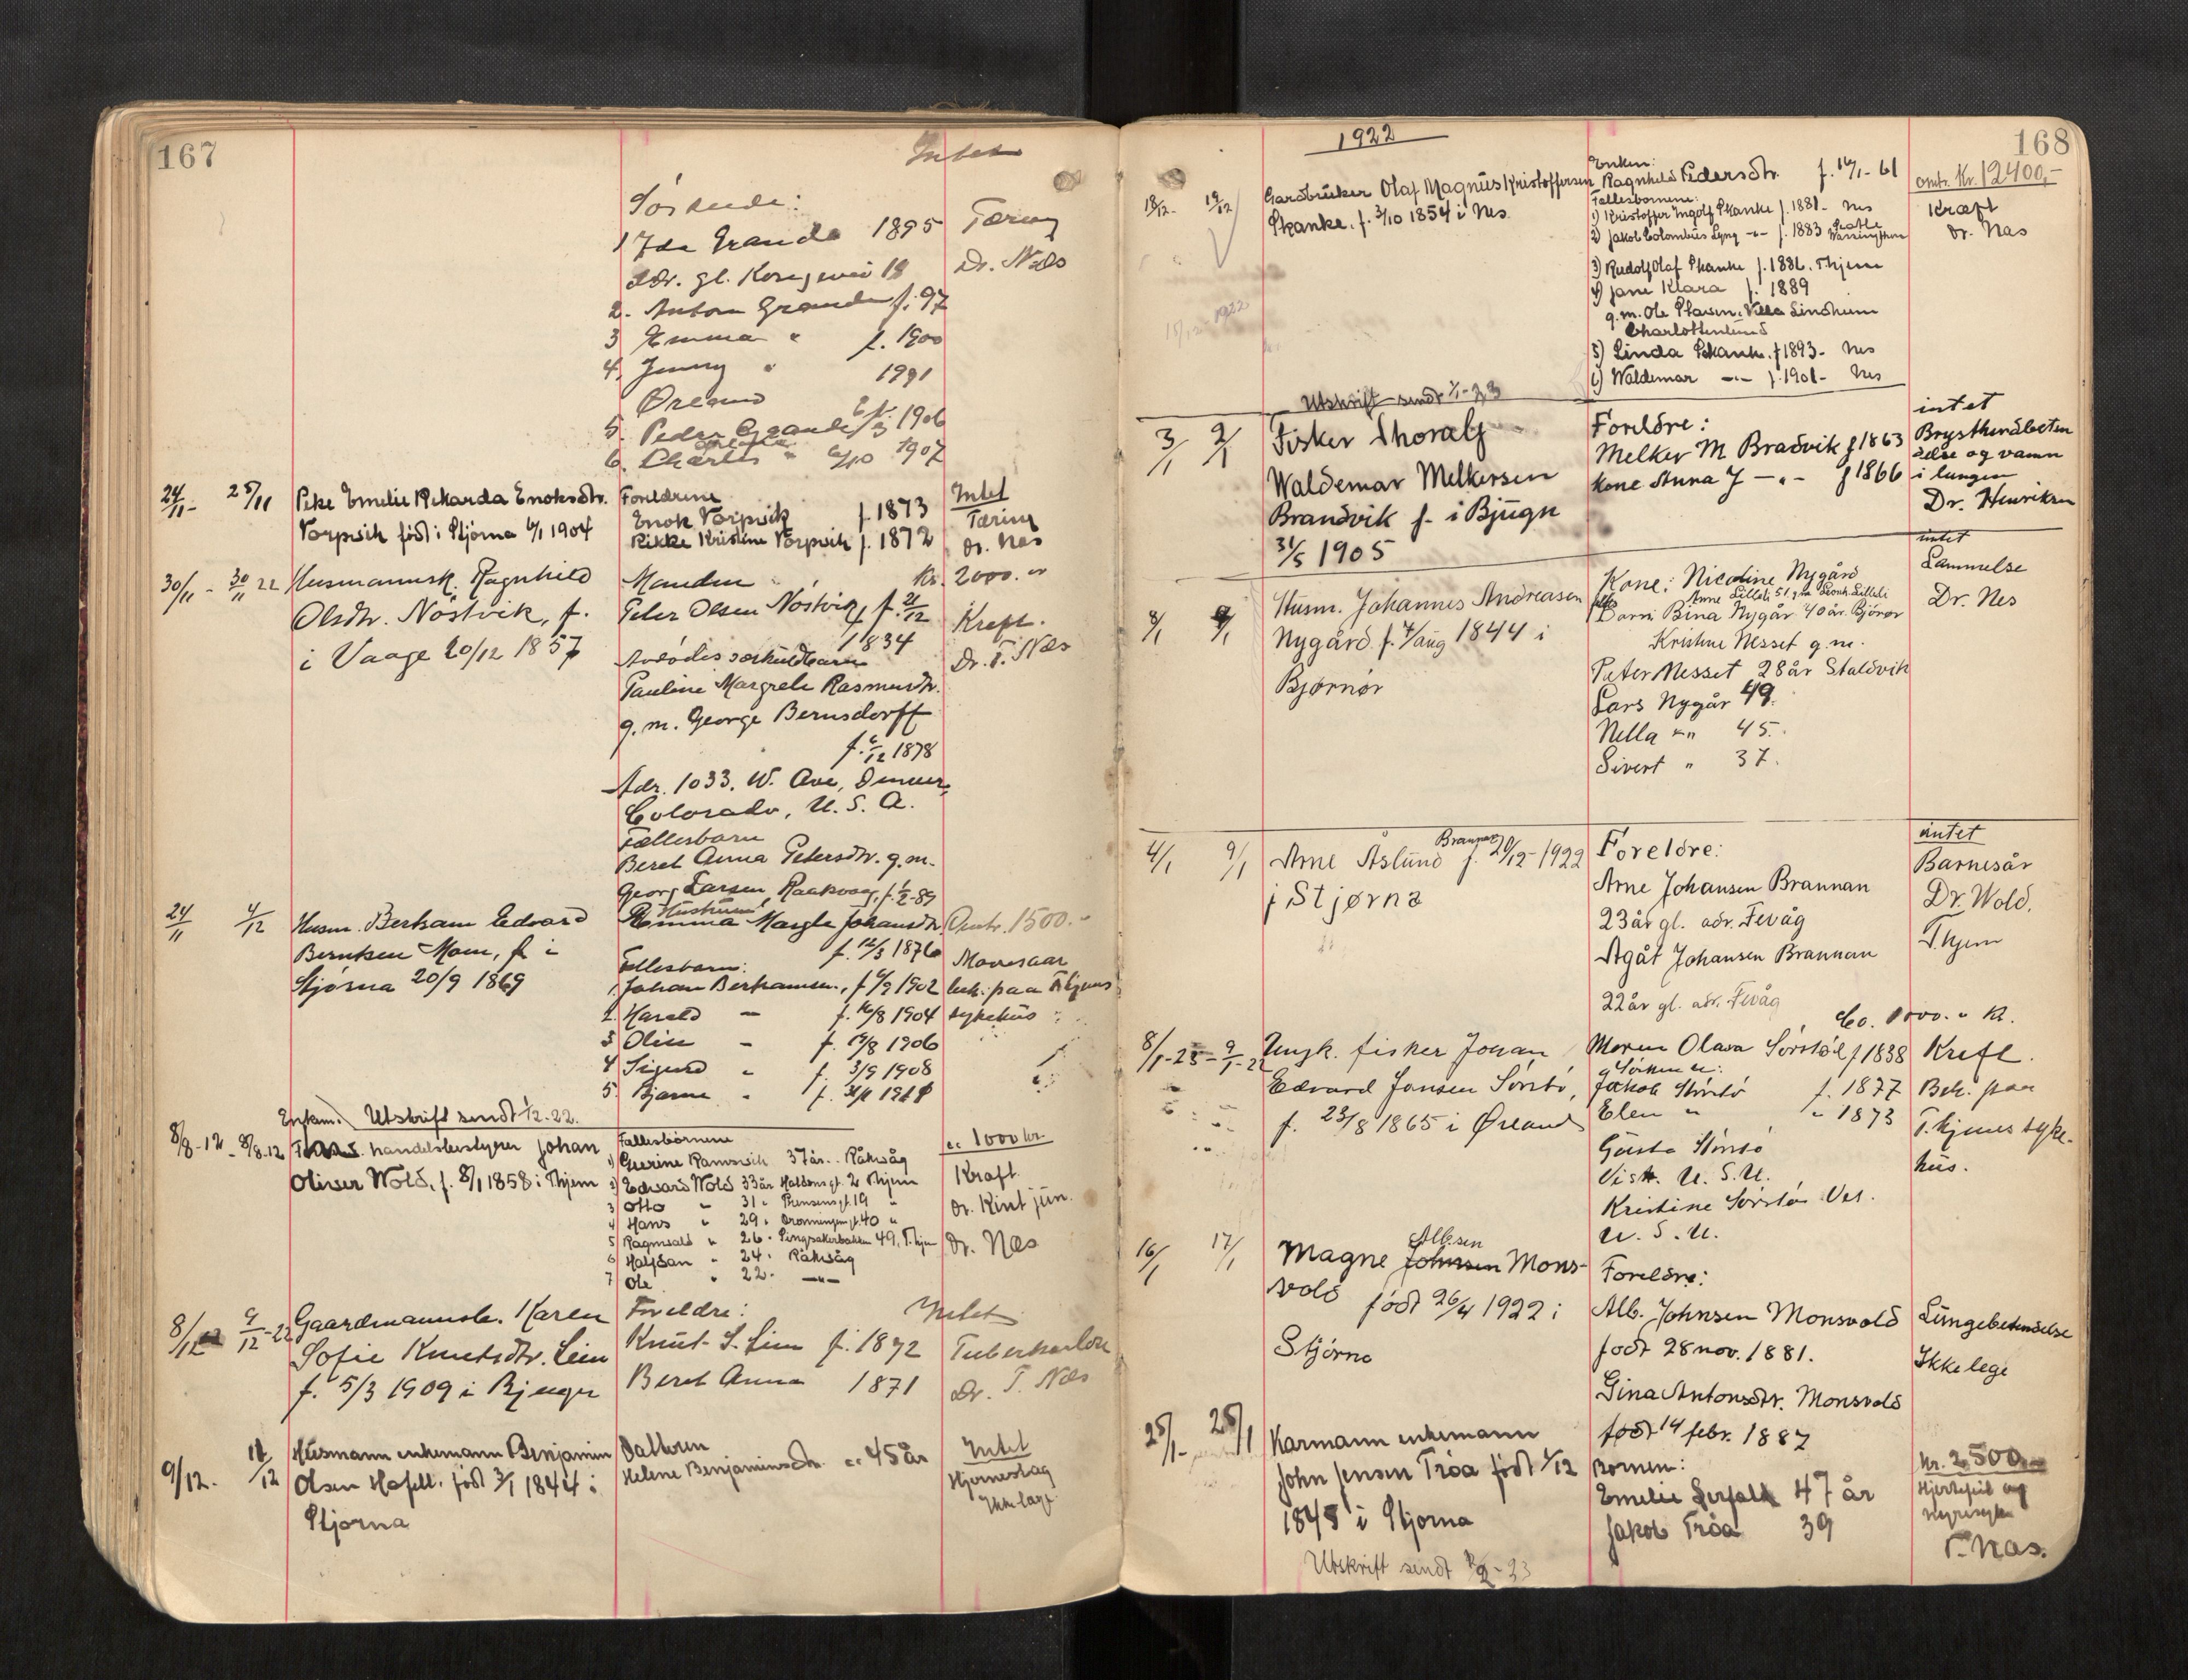 167
Intet
Søskende:
1 Ida Grande 1895 Tæring
adr. gl. Kongevei 18 Dr. Næs
2. Anton Grande f. 97
3 Emma " f. 1900
4, Jenny " 1991
Ørland
5. Peder Grande 1906
6. Charles " 1907
24/11 - 25/11 Pike Emelie Rikarda Enoksdtr. Foreldrene Intet
Vorpvik født i Stjørna 6/1 1904 Enok Vorpvik f. 1873 Tæring
Rikke Kristine Vorpvik f. 1872 Dr. Næs
30/11 - 30/11 22 Husmannsk. Ragnhild Manden Kr. 2000.
Olsdtr. Nöstvik, f. Peter Olsen Nöstvik, f. 21/12 1834 Kreft.
i Vaage 20/12 1857 Avdødes særkuldbarn Dr. T. Næs
Pauline Margrete Rasmusdtr.
g. m. George Bernsdorff
f. 6/12 1878
Adr. 1033. W. Ave, Denver,
Colorado, U. S. A.
Fællesbarn
Beret Anna Petersdtr. g. m.
Georg Larsen Raakvaag, f. 1/2-89
24/11 4/12 Husm. Bertram Edvard Hustrue: Margte Johansdtr. Omtr. 1500.-
Berntsen Moen, f. i f. 12/3 1876 Mavesaar
Stjørna 20/9 1869 Fellesbarn:
1. Johan Bertramsen, f 6/2 1902 beh. paa Thjems
2. Harald — f. 16/8 1904 sykehus
3 Olise - f. 19/8 1906
4 Sigurd - f. 3/9 1908
5 Bjarne - f.
Utskrift sendt 1/2-22.
8/8-12 - 8/8-12 handelsbestyrer Johan Fallesbörnene ca 1000 kr.
Oliver Wold, f. 8/1 1858 i Thjem Ramsvik 37 år. Råkvåg Kræft
2) Edvard Wold 33 år gt. 2 Thjem
3) Otto " 31 " Prinsensgt. 19 " Dr. Kint jun.
4) Hans " 29 " Dronningensgt. 40 "
5) Ragnvald " 26 " Singsakerbakken 49, T.hjem Dr. Næs
6) Halfdan " 24 " Råkvåg
7) Ole " 22 " —"—
8/12 9/12-22 Gaardmannsb. Karen Foreldre: Intet
Sofie Knutsdtr. Lein Knut S. Lein f. 1872 Tuberkulose
f. 5/3 1909 i Bjugn Beret Anna 1871 Dr. T. Næs
9/12. 11/12 Husmann enkemann Benjamin Datteren Intet
Olsen Hofell. født 3/1 1844 i Helene Benjaminsdtr. ca 45 år Hjerneslag
Stjørna Ikke læge
1922 168
18/12 - 19/12 Gardbruker Olaf Magnus Kristoffersen Enken: Ragnhild Pedersdtr. f. 10/1-61 omtr. Kr. 12400,-
Skanke. f. 3/10 1854 i Nes. Fallesbornene:
1) Kristoffer Ingolf Skanke f. 1881 - Nes Kræft
2) Jakob Colombus Lyng -"- f. 1883 Seatle Wasington Dr. Næs
3) Rudolf Olaf Skanke f. 1886. Thjem
4) Jane Klara f. 1889
g. m. Ole Villa Lindheim
Charlottenlund
5) Linda Skanke. f 1893 - Nes
6) Waldemar -"- f. 1901 - Nes
Utskrift sendt 1/1-23
3/1 9/1 Fisker Thoralf Foreldre: intet
Waldemar Melkersen Melker M Bradvik f 1863 Brysthindebeten
Brandvik f. i Bjugn kone Anna J -"- f 1866 delse og vann i lungen
31/5 1905 Dr. Henriksen
8/1 9/1 Husm. Johannes Andreasen Kone: Nicoline Nygård intet
Nygård f. 4/aug 1844 i Barn Bina Nygår 40 år. Bjönör Lammelse
Bjørnør Kristine Nesset g. m. Dr. Nes
Peter Nesset 28 år Staldvik
Lars Nygår 49.
Nella "" 45.
Sivert " 37.
4/1 9/1 Arne Aslund Brannan f. 20/12 1922 Foreldre: intet
i Stjørna Arne Johansen Brannan Barnesår
23 år gl. adr. Fevåg Dr. Wold.
Agåt Johansen Brannan T.hjem
22 år gl. adr. Fevåg
8/1-23 - 9/1-22 Ungk. fisker Johan Moren Olava Sörstö f 1838 Kreft.
Edvard Jansen Sörstö, Jakob Sörstö f. 1877 Beh. paa
f. 23/8 1865 i Ørland Elen " " 1873 T.hjems syke-
Gusta Sörstö hus.
Visk. U. S. A.
Kristine Sörstö Vet.
U. S. A.
16/1 17/1 Magne Johnsen Albsen Mons- Foreldre:
vold født 26/4 1922 i Alb. Johnsen Monsvold Lungebetendelse
Stjørna født 28 nov. 1881. Ikke lege
Gina Antonsdtr. Monsvold
født 14 febr. 1887
25/1 - 25/1 Karmann enkemann Bornene: Kr. 2500,-
John Jensen Tröa født 1/12 Emelie 47 år Hjertefeil og
1845 i Stjorna Jakob Tröa 39 nyresyke
Utskrift sendt 8/2-23 T. Næs.